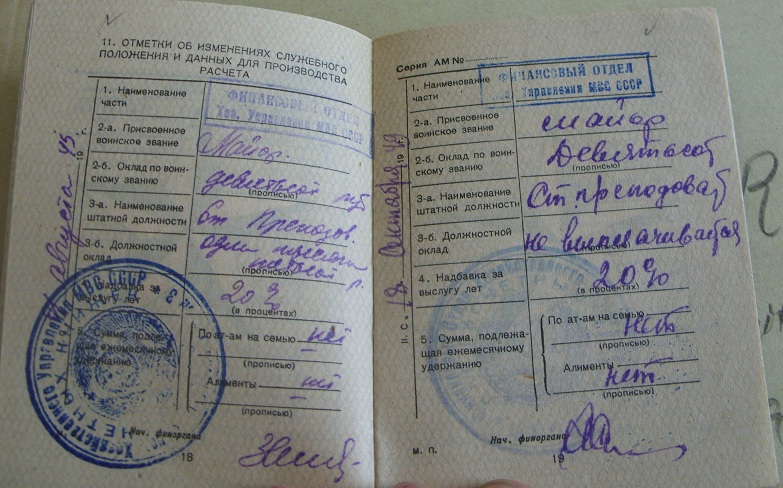 11. ОТМЕТКИ ОБ ИЗМЕНЕНИЯХ СЛУЖЕБНОГО
ПОЛОЖЕНИЯ И ДАННЫХ ДЛЯ ПРОИЗВОДСТВА
РАСЧЕТА
1. Наименование
части
ФИНАНСОВЫЙ ОТДЕЛ
Хоз. Управления МВС СССР
2-а. Присвоенное
воинское звание
Майор.
2-б. Оклад по воин-
скому званию
девятьсот руб
(прописью)
3-а. Наименование
штатной должности
Ст Преподов.
3-б. Должностной
оклад
(прописью)
Надбавка за
выслугу лет
20%
(в процентах)
5. Сумма, подлежа-
щая ежемесячному
удержанию
По ат-ам на семью нет
(прописью)
Алименты нет
(прописью)
Нач. финоргана
18
августа
19 г.
Хозяйственного Управления МВС СССР
Серия АМ №
1. Наименование
части
ФИНАНСОВЫЙ ОТДЕЛ
Хоз. Управления МВС СССР
2-а. Присвоенное
воинское звание
майор
2-б. Оклад по воин-
скому званию
Девятьсот
(прописью)
3-а. Наименование
штатной должности
Ст преподоват
3-б. Должностной
оклад
не выплачивается
(прописью)
4. Надбавка за
выслугу лет
20%
(в процентах)
5. Сумма, подлежа-
щая ежемесячному
удержанию
По ат-ам на семью
нет
(прописью)
Алименты
нет
(прописью)
Нач. финоргана
м. п.
19
Сентября
19 г.